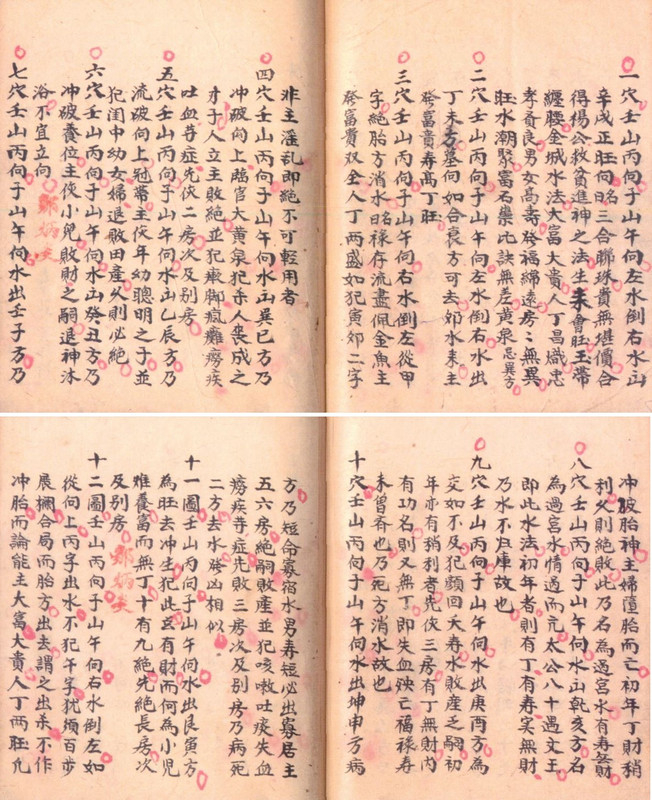 一穴壬山丙向子山午向左水倒右水出
辛戌正旺向名曰三合聯珠貴無堪價合
得楊公救貧進神之法生來會旺玉帶
纏腰金城水法大富大貴人丁昌熾忠
孝賢良男女高壽發福綿遠房々無異
旺水潮聚富石崇比訣無差黃泉忌巽方
二穴壬山丙向子山午向左水倒右水出
丁未方墓向如合衰方可去郊水來主
發富貴壽高丁旺
三穴壬山丙向子山午向右水倒左從甲
字絕胎方消水名曰祿存流盡佩金魚主
發富貴双全人丁兩盛如犯寅郊二字
非主淫乱即絕不可輕用者
四穴壬山丙向子山午向水出巽巳方乃
冲破向上臨官大黃泉犯杀人喪成之
才子人立主敗絕並犯瘷腳瘋癱癆疾
吐血等症先伤二房次及別房
五穴壬山丙向子山午向水出乙辰方乃
流破向上冠帶主伤年幼聰明之子並
犯閨中幼女婦退敗田產久則必絕
六穴壬山丙向子山午向水出癸丑方乃
冲破養位主伤小兒敗財之嗣退神沐
浴不宜立向
七穴壬山丙向子山午向水出壬子方乃
冲破胎神主婦墮胎而亡初年丁財稍
利久則絕敗此乃名為過宮水有壽無財
八穴壬山丙向子山午向水出乾亥方名
為過宮水情過而亢太公八十遇文王
即此水法初年者則有丁有壽実無財
乃水不归庫故也
九穴壬山丙向子山午向水出庚酉方為
交如不及犯顏回夭壽水敗產之嗣初
年亦有稍利者先伤三房有丁無財內
有功名則又無丁即失血殀亡福祿壽
未曾齐也乃死方消水故也
十穴壬山丙向子山午向水出坤申方病
方乃短命寡宿水男壽短必出寡居主
五六房絕嗣敗產並犯咳嗽吐痰失血
癆疾等症先敗三房次及別房乃病死
二方去水發凶相似
十一圖壬山丙向子山午向水出艮寅方
為旺去冲生犯此名有財而何為小兒
难養富而無丁十有九絕先絕長房次
及別房
十二圖壬山丙向子山午向右水倒左如
從向上丙子出水不犯午字犹須百步
展攔合局而胎方出去謂之出杀不作
冲胎而論能主大富大貴人丁兩旺凢